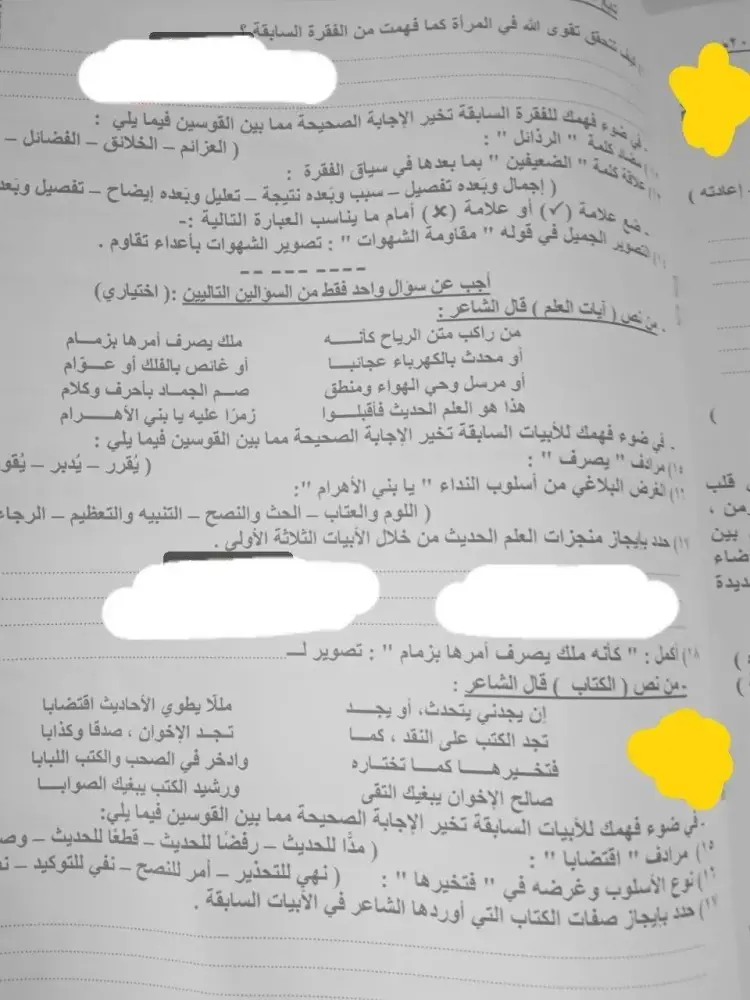 كيف تتحقق تقوى الله في المرأة كما فهمت من الفقرة السابقة ؟
- في ضوء فهمك للفقرة السابقة تخير الإجابة الصحيحة مما بين القوسين فيما يلي :
مضاد كلمة " الرذائل " : ( العزائم – الخلائق – الفضائل –
١٢) علاقة كلمة " الضعيفين " بما بعدها في سياق الفقرة :
( إجمال وبعده تفصيل – سبب وبعده نتيجة – تعليل وبعده إيضاح – تفصيل وبعد
- ضع علامة (✓) أو علامة (✗) أمام ما يناسب العبارة التالية :-
التصوير الجميل في قوله " مقاومة الشهوات " : تصوير الشهوات بأعداء تقاوم .
أجب عن سؤال واحد فقط من السؤالين التاليين :( اختياري)
- من نص ( آيات العلم ) قال الشاعر :
من راكب متن الرياح كأنه ملك يصرف أمرها بزمام
أو محدث بالكهرباء عجائبا أو غائص بالفلك أو عوّام
أو مرسل وحي الهواء ومنطق صم الجماد بأحرف وكلام
هذا هو العلم الحديث فأقبلوا زمرًا عليه يا بني الأهرام
- في ضوء فهمك للأبيات السابقة تخير الإجابة الصحيحة مما بين القوسين فيما يلي :
١٥) مرادف " يصرف " : ( يُقرر – يُدبر – يُقو
١٦) الغرض البلاغي من أسلوب النداء " يا بني الأهرام ":
( اللوم والعتاب – الحث والنصح – التنبيه والتعظيم – الرجاء
١٧) حدد بإيجاز منجزات العلم الحديث من خلال الأبيات الثلاثة الأولى .
١٨) أكمل : " كأنه ملك يصرف أمرها بزمام " : تصوير لـ
- من نص ( الكتاب ) قال الشاعر :
إن يجدني يتحدث، أو يجد مللًا يطوي الأحاديث اقتضابا
تجد الكتب على النقد ، كما تجد الإخوان ، صدقا وكذابا
فتخيرها كما تختاره وادخر في الصحب والكتب اللبابا
صالح الإخوان يبغيك التقى ورشيد الكتب يبغيك الصوابا
- في ضوء فهمك للأبيات السابقة تخير الإجابة الصحيحة مما بين القوسين فيما يلي:
١٥) مرادف " اقتضابا " : ( مدًّا للحديث – رفضًا للحديث – قطعًا للحديث – وص
١٦) نوع الأسلوب وغرضه في " فتخيرها " : ( نهي للتحذير – أمر للنصح – نفي للتوكيد –
١٧) حدد بإيجاز صفات الكتاب التي أوردها الشاعر في الأبيات السابقة .
إعادته )
قلب
بين